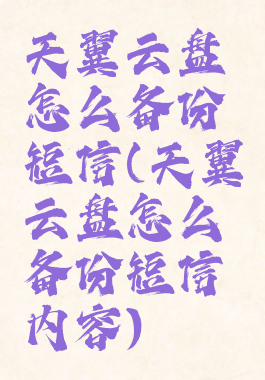 天翼云盘
怎么备份
短信(天翼
云盘怎么
备份短信
内容)